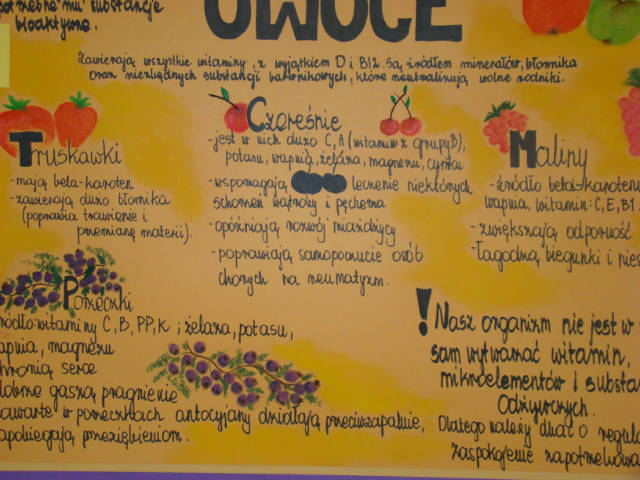 potrzebne mu substancje
bioaktywne.
OWOCE
Zawierają wszystkie witaminy, z wyjątkiem D i B12. Są źródłem minerałów, błonnika
oraz niezbędnych substancji balastnikowych, które neutralizują wolne rodniki.
Truskawki
-mają beta-karoten
-zawierają dużo błonnika
(poprawia trawienie i
przemianę materii).
Czereśnie
-jest w nich dużo C, A (witamin z grupy B),
potasu, wapnia, żelaza, magnezu, cynku
-wspomagają leczenie niektórych
schorzeń wątroby i pęcherza
-opóźniają rozwój miażdżycy
-poprawiają samopoczucie osób
chorych na reumatyzm.
Maliny
-źródło beta-karotenu
wapnia, witamin: C, E, B1
-zwiększają odporność
-łagodzą biegunki i nies
Porzeczki
źródło: witaminy C, B, PP, K ; żelaza, potasu,
wapnia, magnezu
chronią serce
dobrze gaszą pragnienie
zawarte w porzeczkach antocyjany działają przeciwzapalnie,
zapobiegają przeziębieniom.
! Nasz organizm nie jest w
sam wytwarzać witamin,
mikroelementów i substa
Odżywczych.
Dlatego należy dbać o regula
zaspokojenie zapotrzebowa